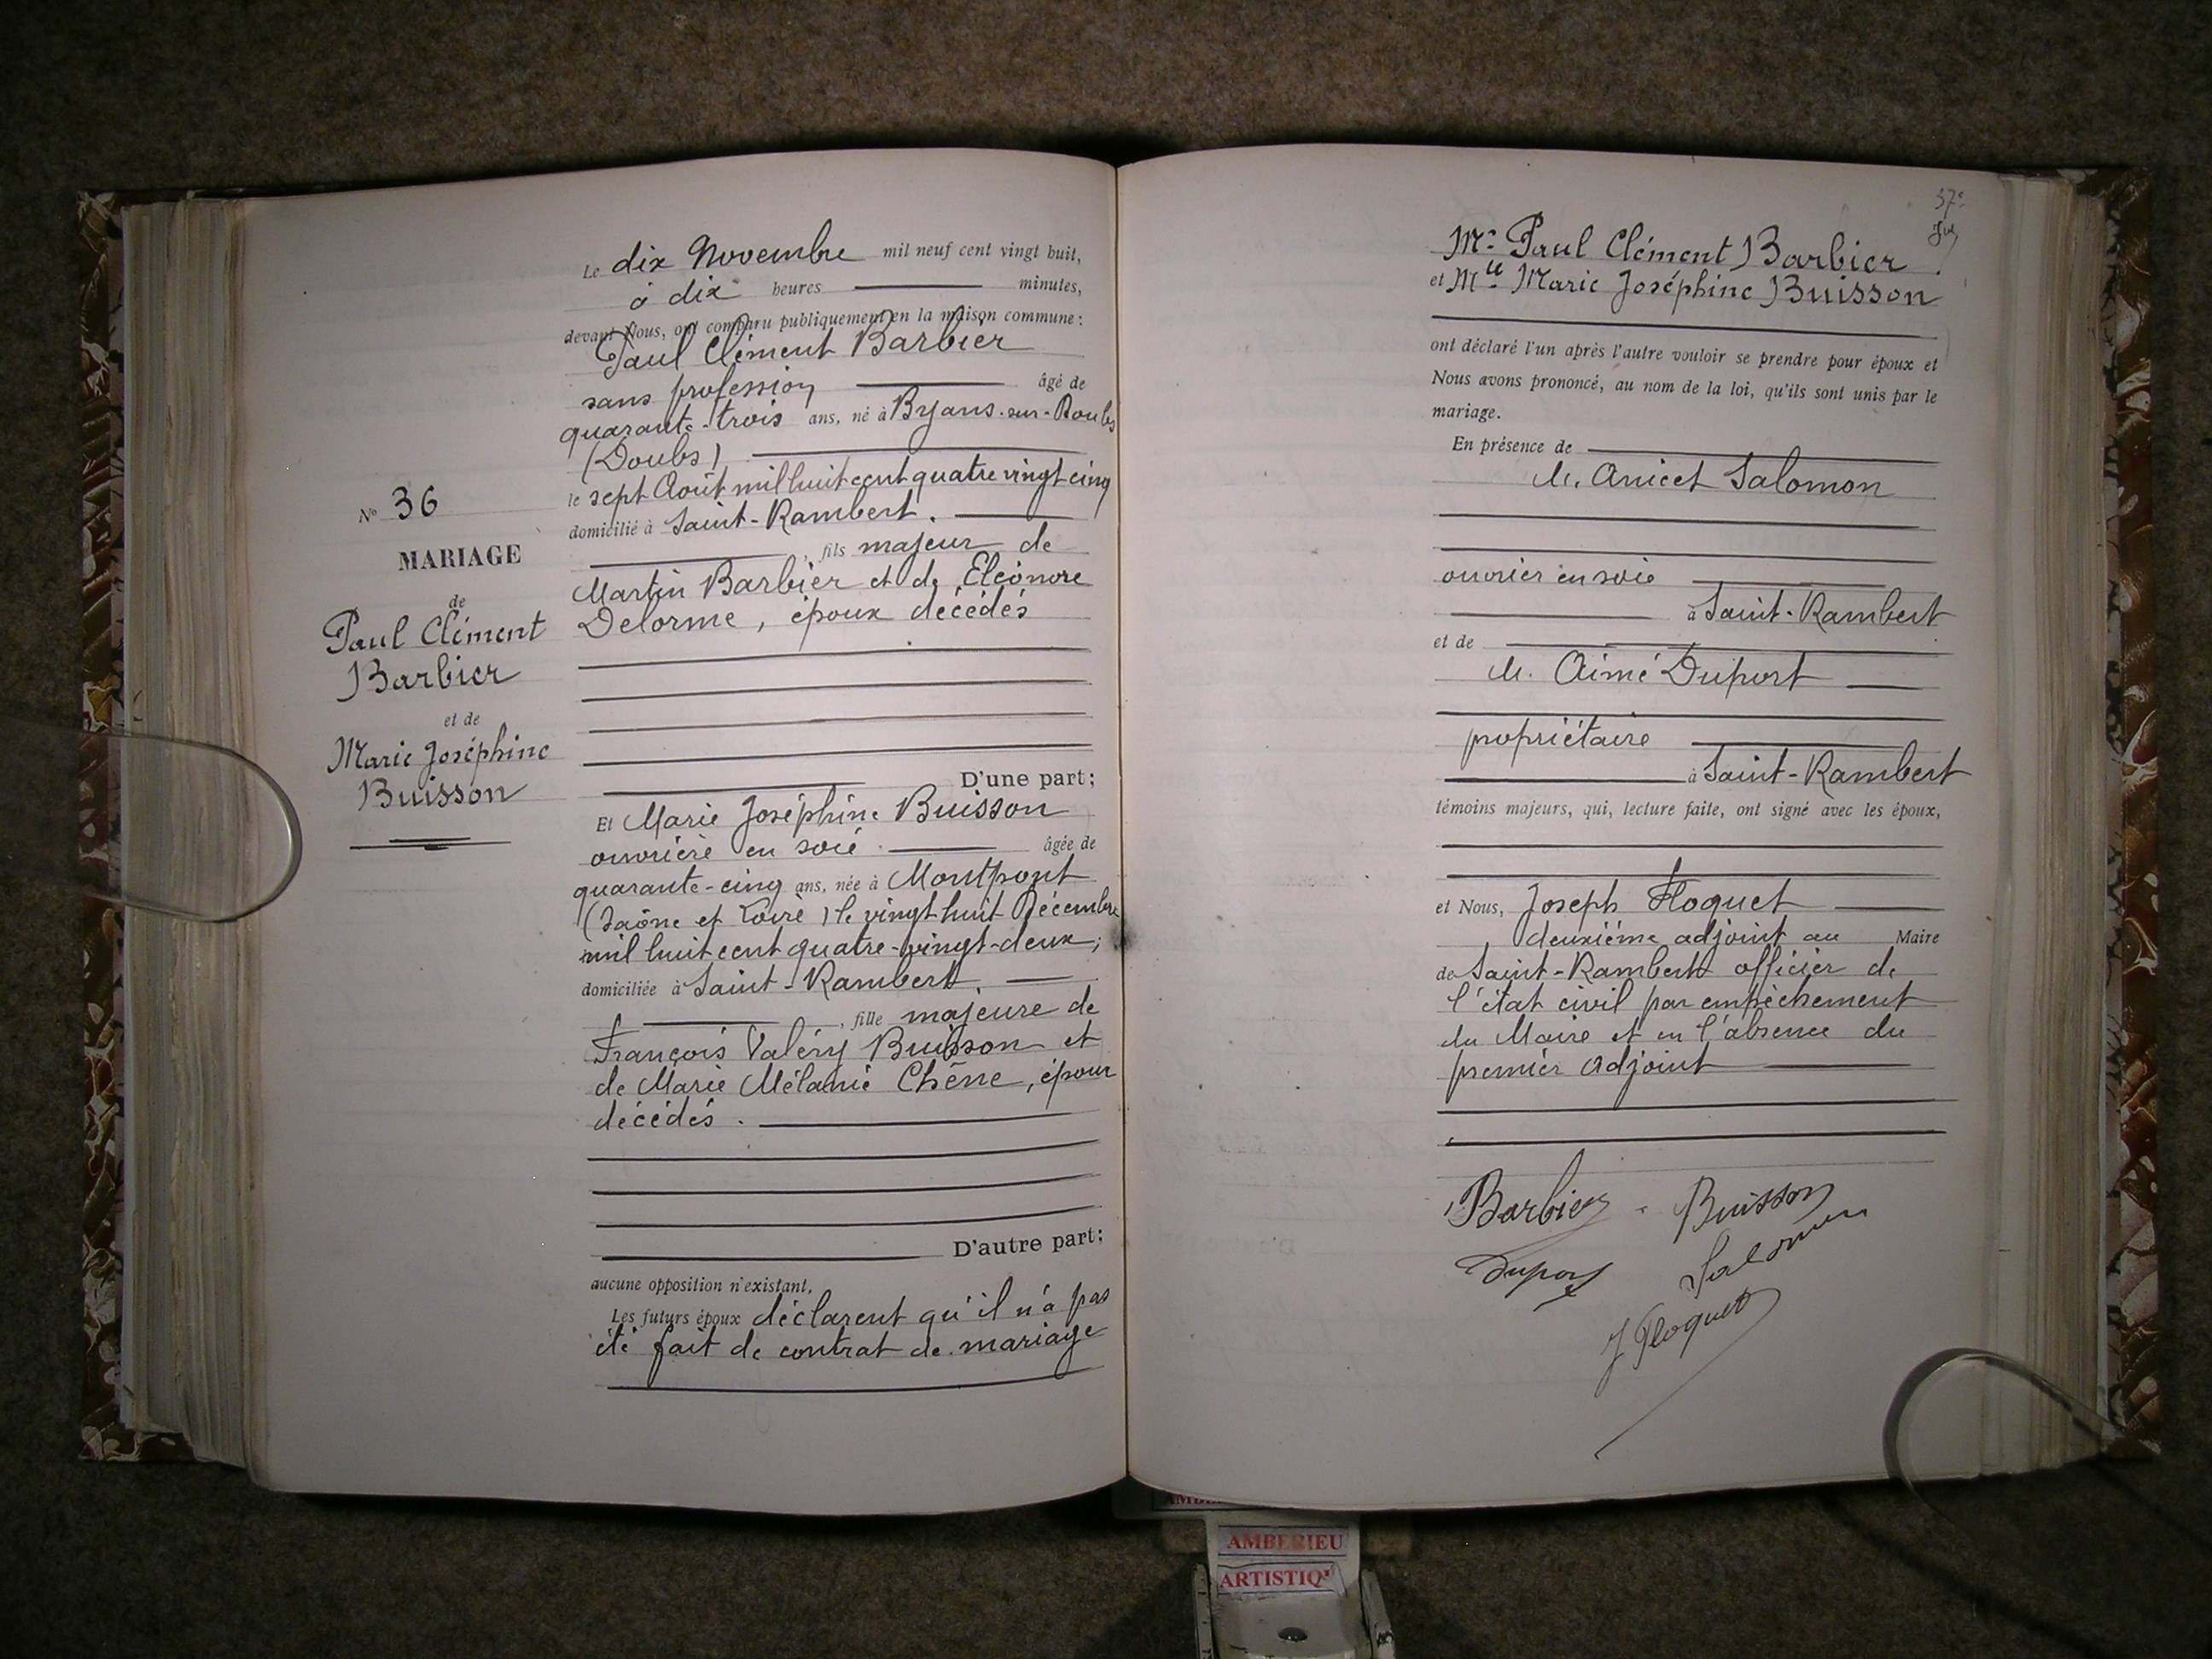 N° 36
MARIAGE
de
Paul Clément
Barbier
et de
Marie Joséphine
Buisson
Le dix Novembre mil neuf cent vingt huit,
à dix heures minutes,
devant Nous, ont comparu publiquement en la maison commune :
Paul Clément Barbier
sans profession âgé de
quarante-trois ans, né à Byans-sur-Doubs
(Doubs)
le sept Août mil huit cent quatre vingt cinq
domicilié à Saint-Rambert.
, fils majeur de
Martin Barbier et de Eléonore
Delorme, époux décédés
D'une part;
Et Marie Joséphine Buisson
ouvrière en soie âgée de
quarante-cinq ans, née à Montpont
(Saône et Loire) le vingt huit Décembre
mil huit cent quatre-vingt-deux;
domiciliée à Saint-Rambert.
, fille majeure de
François Valéry Buisson et
de Marie Mélanie Chêne, époux
décédés.
D'autre part;
aucune opposition n'existant,
Les futurs époux déclarent qu'il n'a pas
été fait de contrat de mariage
37e
Mr Paul Clément Barbier
et Mlle Marie Joséphine Buisson
ont déclaré l'un après l'autre vouloir se prendre pour époux et
Nous avons prononcé, au nom de la loi, qu'ils sont unis par le
mariage.
En présence de
M. Anicet Salomon
ouvrier en soie
à Saint-Rambert
et de
M. Aimé Duport
propriétaire
à Saint-Rambert
témoins majeurs, qui, lecture faite, ont signé avec les époux,
et Nous, Joseph Floquet
deuxième adjoint au Maire
de Saint-Rambert officier de
l'état civil par empêchement
du Maire et en l'absence du
premier adjoint
Barbier Buisson
Duport Salomon
J Floquet
AMBERIEU
ARTISTIQ